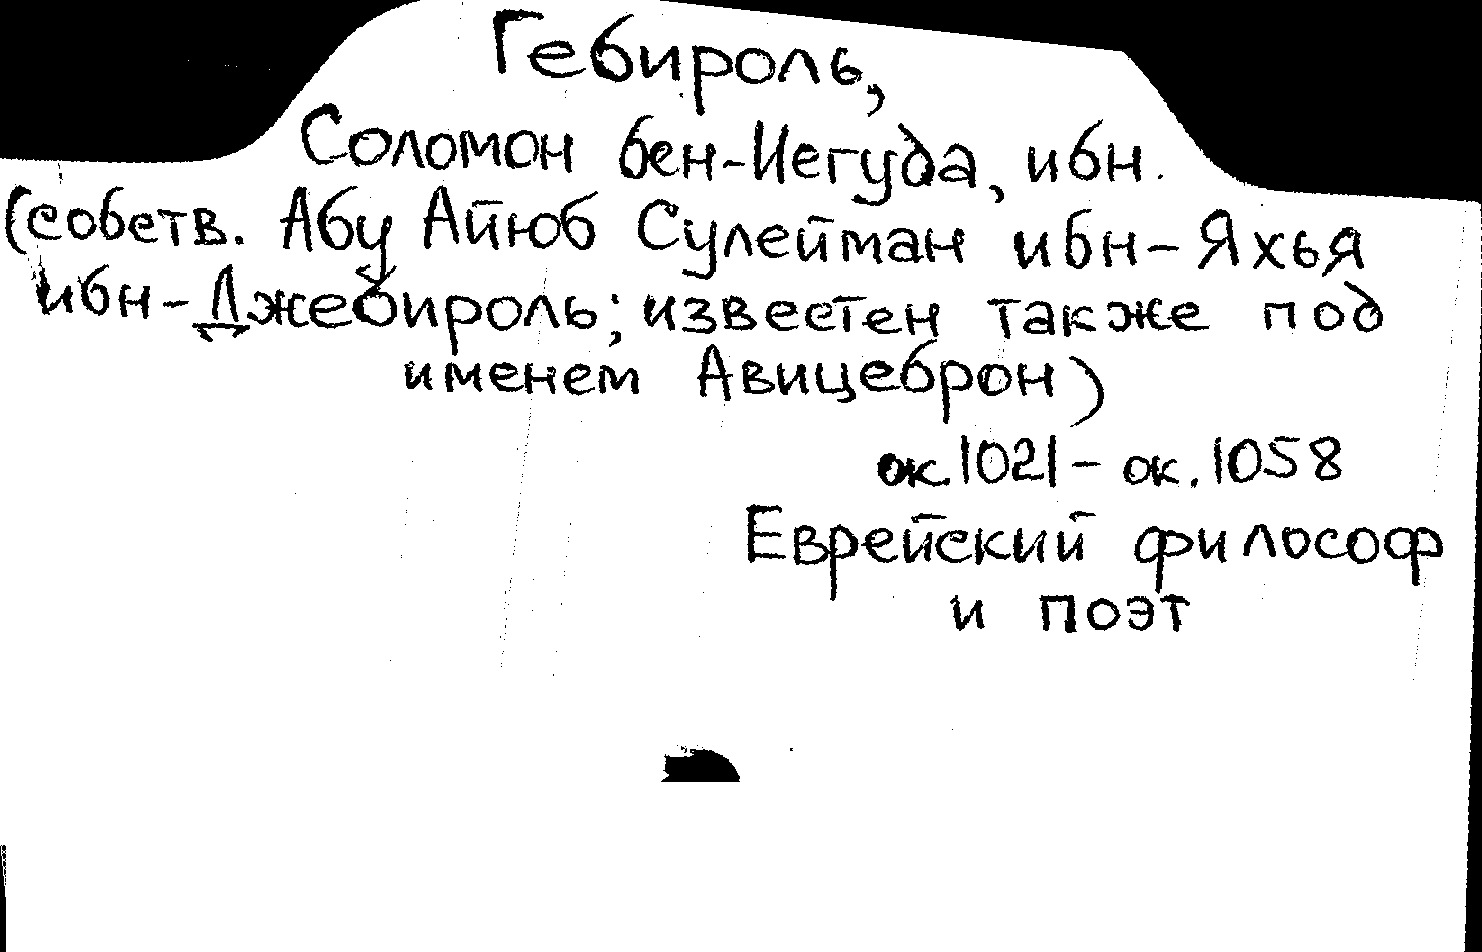 Гебироль,
Соломон бен-Иегуда, ибн.
(собств. Абу Айюб Сулейман ибн-Яхья
ибн-Джебироль; известен также под
именем Авицеброн)
ок.1021- ок.1058
Еврейский философ
и поэт